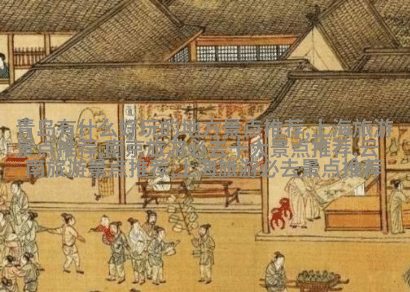 青岛有什么好玩的地方景点推荐,上海旅游
景点推荐,香格里拉必去十大景点推荐,云
南旅游景点推荐,上海旅游必去景点推荐